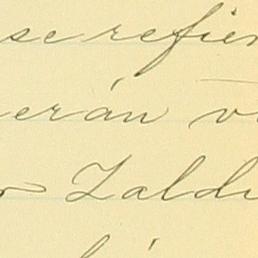 se refier
erán v
r Zaldi